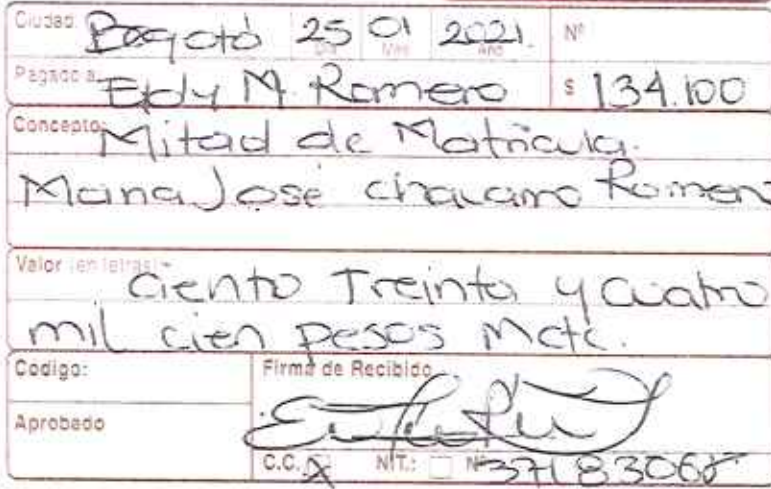 Ciudad: Bogotá 25 01 2021. Nº
Dia Mes Año
Pagado a: Eddy M. Romero $ 134.100
Concepto: Mitad de Matrícula.
Maria José Romero
Valor (en letras) Ciento Treinta y Cuatro
mil cien pesos Mcte.
Codigo: Firma de Recibido
Aprobado
C.C. X NIT.: Nº